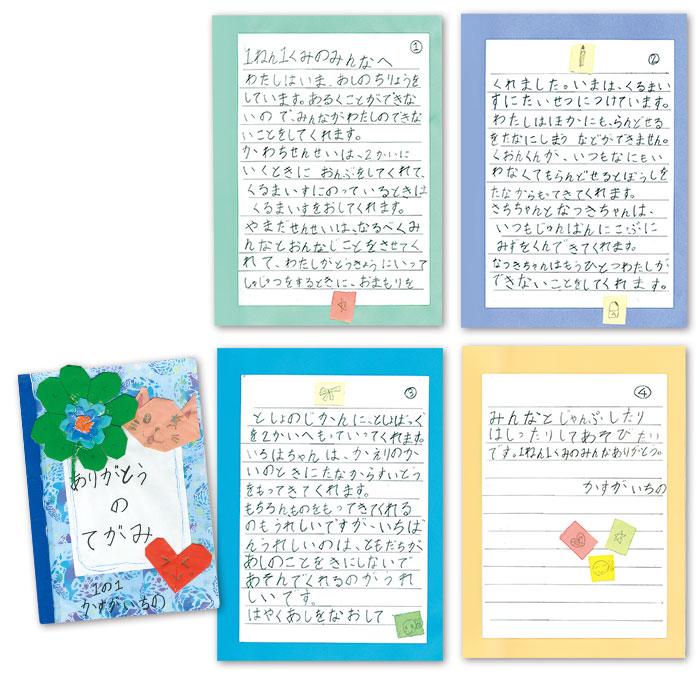 ①
1ねん1くみのみんなへ
わたしはいま、あしのちりょうを
しています。あるくことができな
いので、みんながわたしのできな
いことをしてくれます。
かわちせんせいは、2かいに
いくときにおんぶをしてくれて、
くるまいすにのっているときは
くるまいすをおしてくれます。
やまだせんせいは、なるべくみ
んなとおんなじことをさせてく
れて、わたしがとうきょうにいって
しゅじつをするときに、おまもりを
②
くれました。いまは、くるまい
すにたいせつにつけています。
わたしはほかにも、らんどせる
をたなにしまうなどができません。
くおんくんが、いつもなにもい
わなくてもらんどせるとぼうしを
たなからもってきてくれます。
さちちゃんとなつきちゃんは、
いつもじゅんばんにこっぷに
みずをくんできてくれます。
なつきちゃんはもうひとつわたしが
できないことをしてくれます。
③
としょのじかんに、としょばっぐ
を2かいへもっていってくれます。
いろはちゃんは、かえりのか
いのときにたなからすいとう
をもってきてくれます。
もちろんものをもってきてくれる
のもうれしいですが、いちば
んうれしいのは、ともだちが
あしのことをきにしないで
あそんでくれるのがうれ
しいです。
はやくあしをなおして
④
みんなとじゃんぷしたり
はしったりしてあそびたい
です。1ねん1くみのみんなありがとう。
かすがいちの
ありがとう
の
てがみ
1の1
かすがいちの